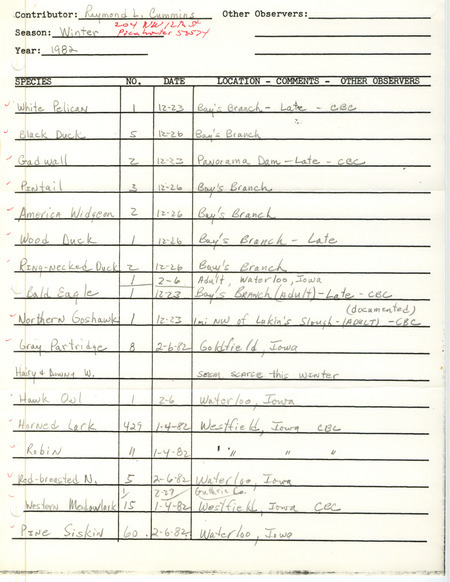 Contributor: Raymond L. Cummins Other Observers:
204 NW 12th St
Season: Winter Pocahontas 50574
Year: 1982
SPECIES NO. DATE LOCATION - COMMENTS - OTHER OBSERVERS
White Pelican 1 12-23 Bay's Branch - Late - CBC
Black Duck 5 12-26 Bay's Branch
Gadwall 2 12-23 Panorama Dam - Late - CBC
Pintail 3 12-26 Bay's Branch
America Widgeon 2 12-26 Bay's Branch
Wood Duck 1 12-26 Bay's Branch - Late
Ring-Necked Duck 2 12-26 Bay's Branch
1 2-6 Adult, Waterloo, Iowa
Bald Eagle 1 12-23 Bay's Branch (Adult) - Late - CBC
(documented)
Northern Goshawk 1 12-23 1mi NW of Lakin's Slough - (ADULT) - CBC
Gray Partridge 8 2-6-82 Goldfield, Iowa
Hairy & Downy W. SEEM SCARCE this WINTER
Hawk Owl 1 2-6 Waterloo, Iowa
Horned Lark 429 1-4-82 Westfield, Iowa CBC
Robin 11 1-4-82 " " " "
Red-breasted N. 5 2-6-82 Waterloo, Iowa
1 2-27 Guthrie Co.
Western Meadowlark 15 1-4-82 Westfield, Iowa CBC
Pine Siskin 60 2-6-82 Waterloo, Iowa